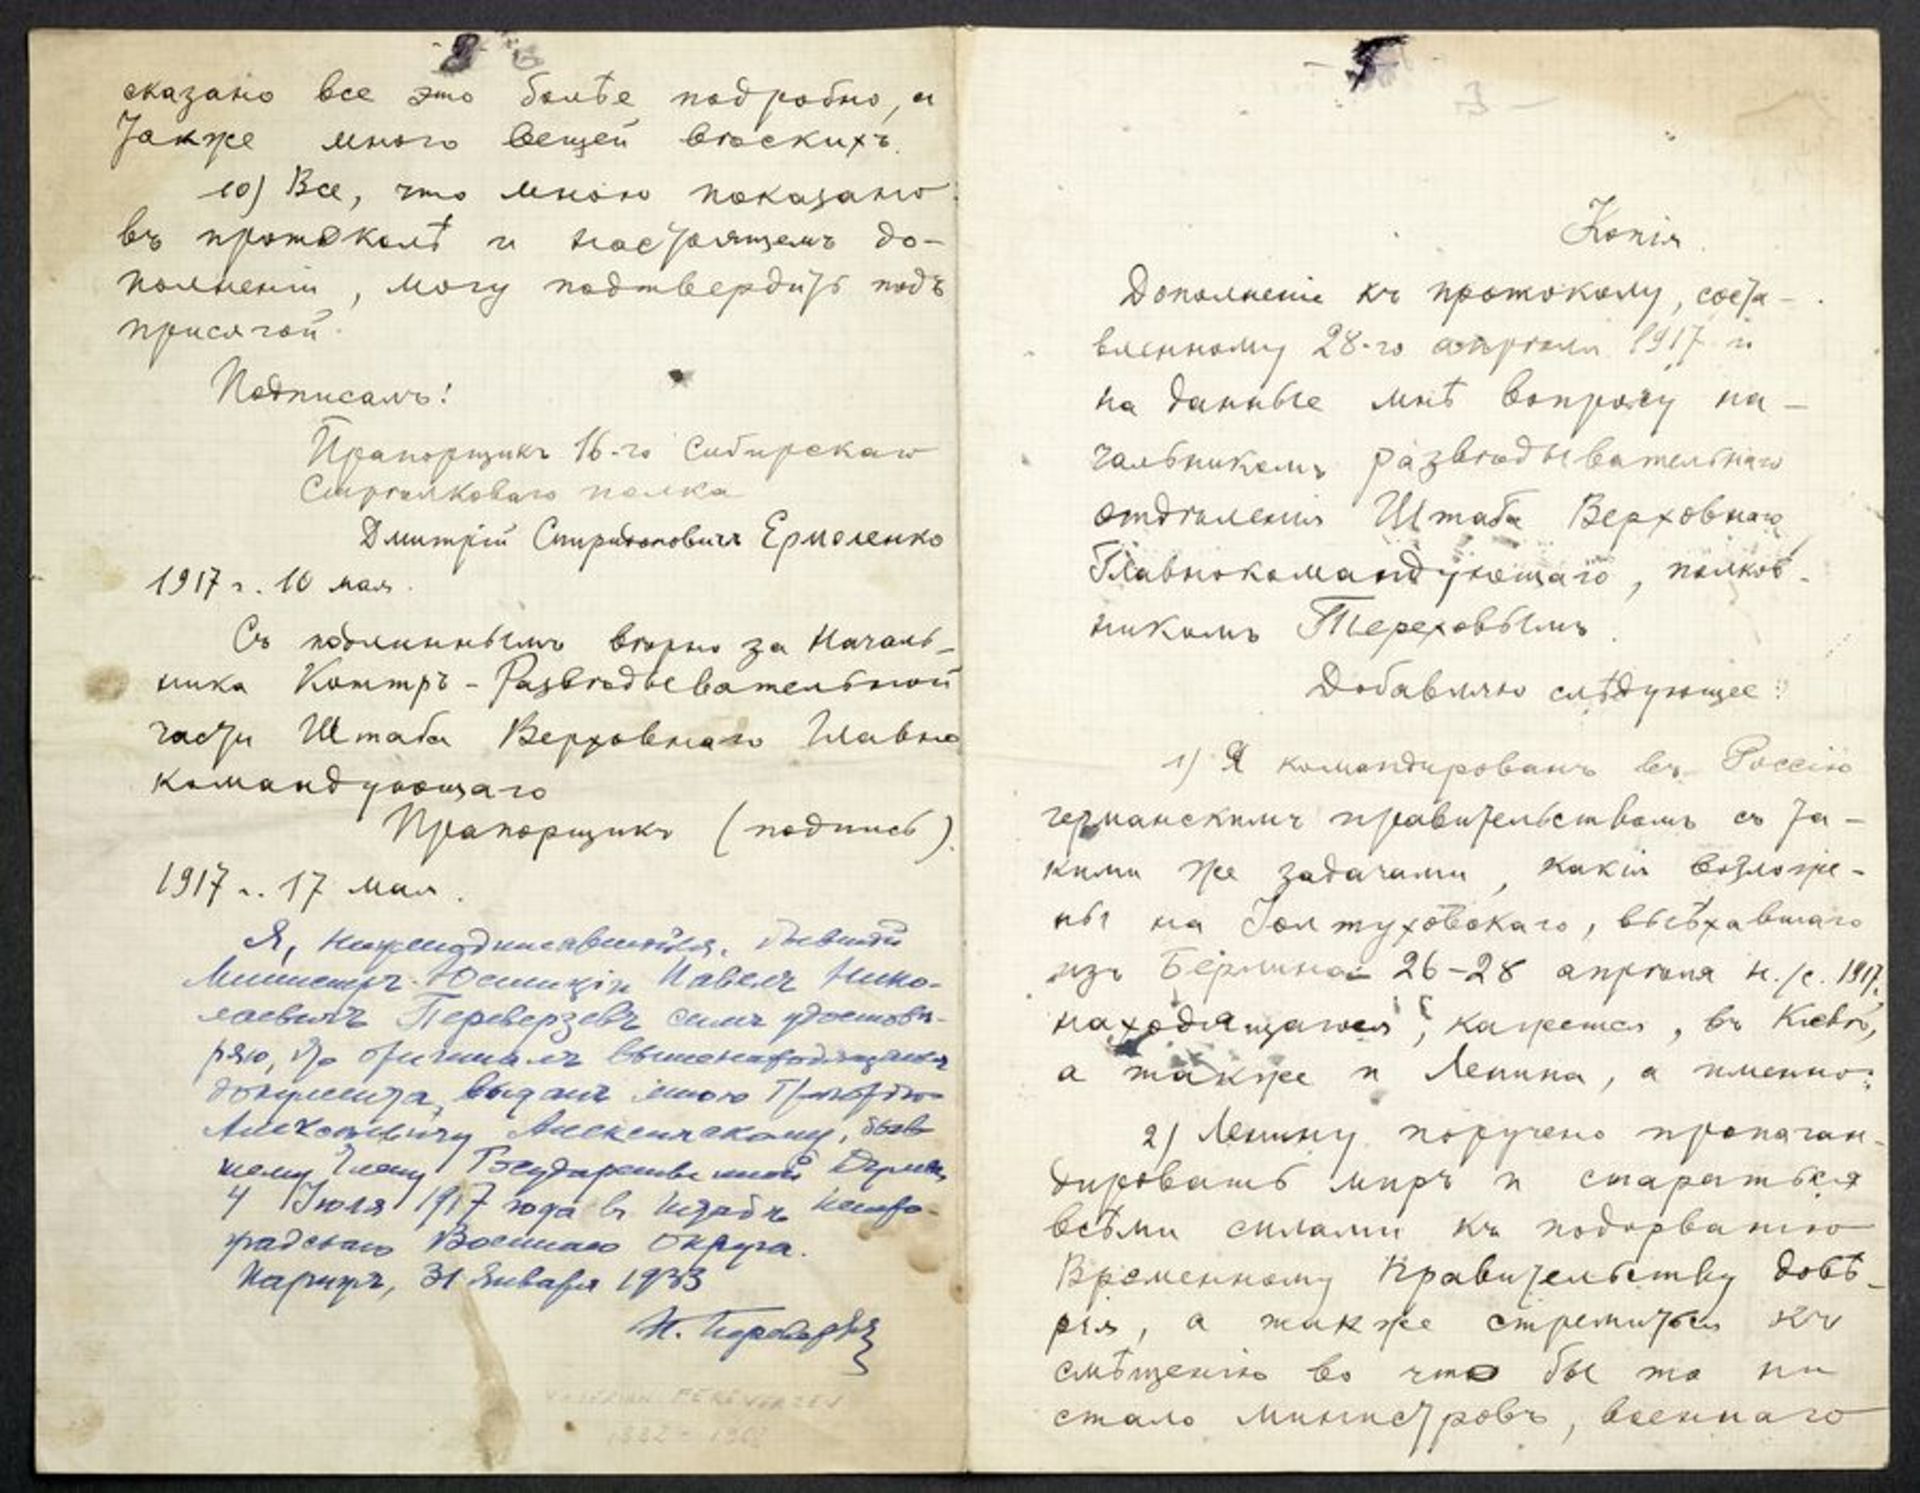 сказано все это болѣе подробно, а
также много вещей вѣскихъ.
10) Все, что мною показано
въ протоколѣ и настоящемъ до-
полненіи, могу подтвердить подъ
присягой.
Подписалъ:
Прапорщикъ 16-го Сибирскаго
Стрѣлковаго полка
Дмитрій Спиридоновичъ Ермоленко
1917 г. 10 мая.
Съ подлиннымъ вѣрно за Началь-
ника Контръ-Развѣдывательной
части Штаба Верховнаго Главно
командующаго
Прапорщикъ (подпись).
1917 г. 17 мая.
Я, нижеподписавшійся, бывшій
Министръ Юстиціи Павелъ Нико-
лаевичъ Переверзевъ симъ удостовѣ-
ряю, что оригиналъ вышенаходящагося
документа, выданъ мною Григорію
Алексѣевичу Алексинскому, быв
шему Члену Государственной Думы,
4 Іюля 1917 года въ Штабѣ Петро-
градскаго Военнаго Округа.
Парижъ, 31 Января 1933
П. Переверзевъ
PEREVERZEV
- 5 -
Копія.
Дополненіе къ протоколу, соста-
вленному 28-го апрѣля 1917 г.
на данные мнѣ вопросы на-
чальникомъ развѣдывательнаго
отдѣленія Штаба Верховнаго
Главнокомандующаго, полков-
никомъ Тереховымъ.
Добавляю слѣдующее:
1) Я командированъ въ Россію
германскимъ правительствомъ съ та-
кими же задачами, какія возложе-
ны на Іолтуховскаго, выѣхавшаго
изъ Берлина 26-28 апрѣля н./с. 1917.
находящагося, кажется, въ Кіевѣ,
а также и Ленина, а именно:
2) Ленину поручено пропаган-
дировать миръ и стараться
всѣми силами къ подорванію
Временному Правительству довѣ-
рія, а также стремиться къ
смѣщенію во что бы то ни
стало министровъ, военнаго